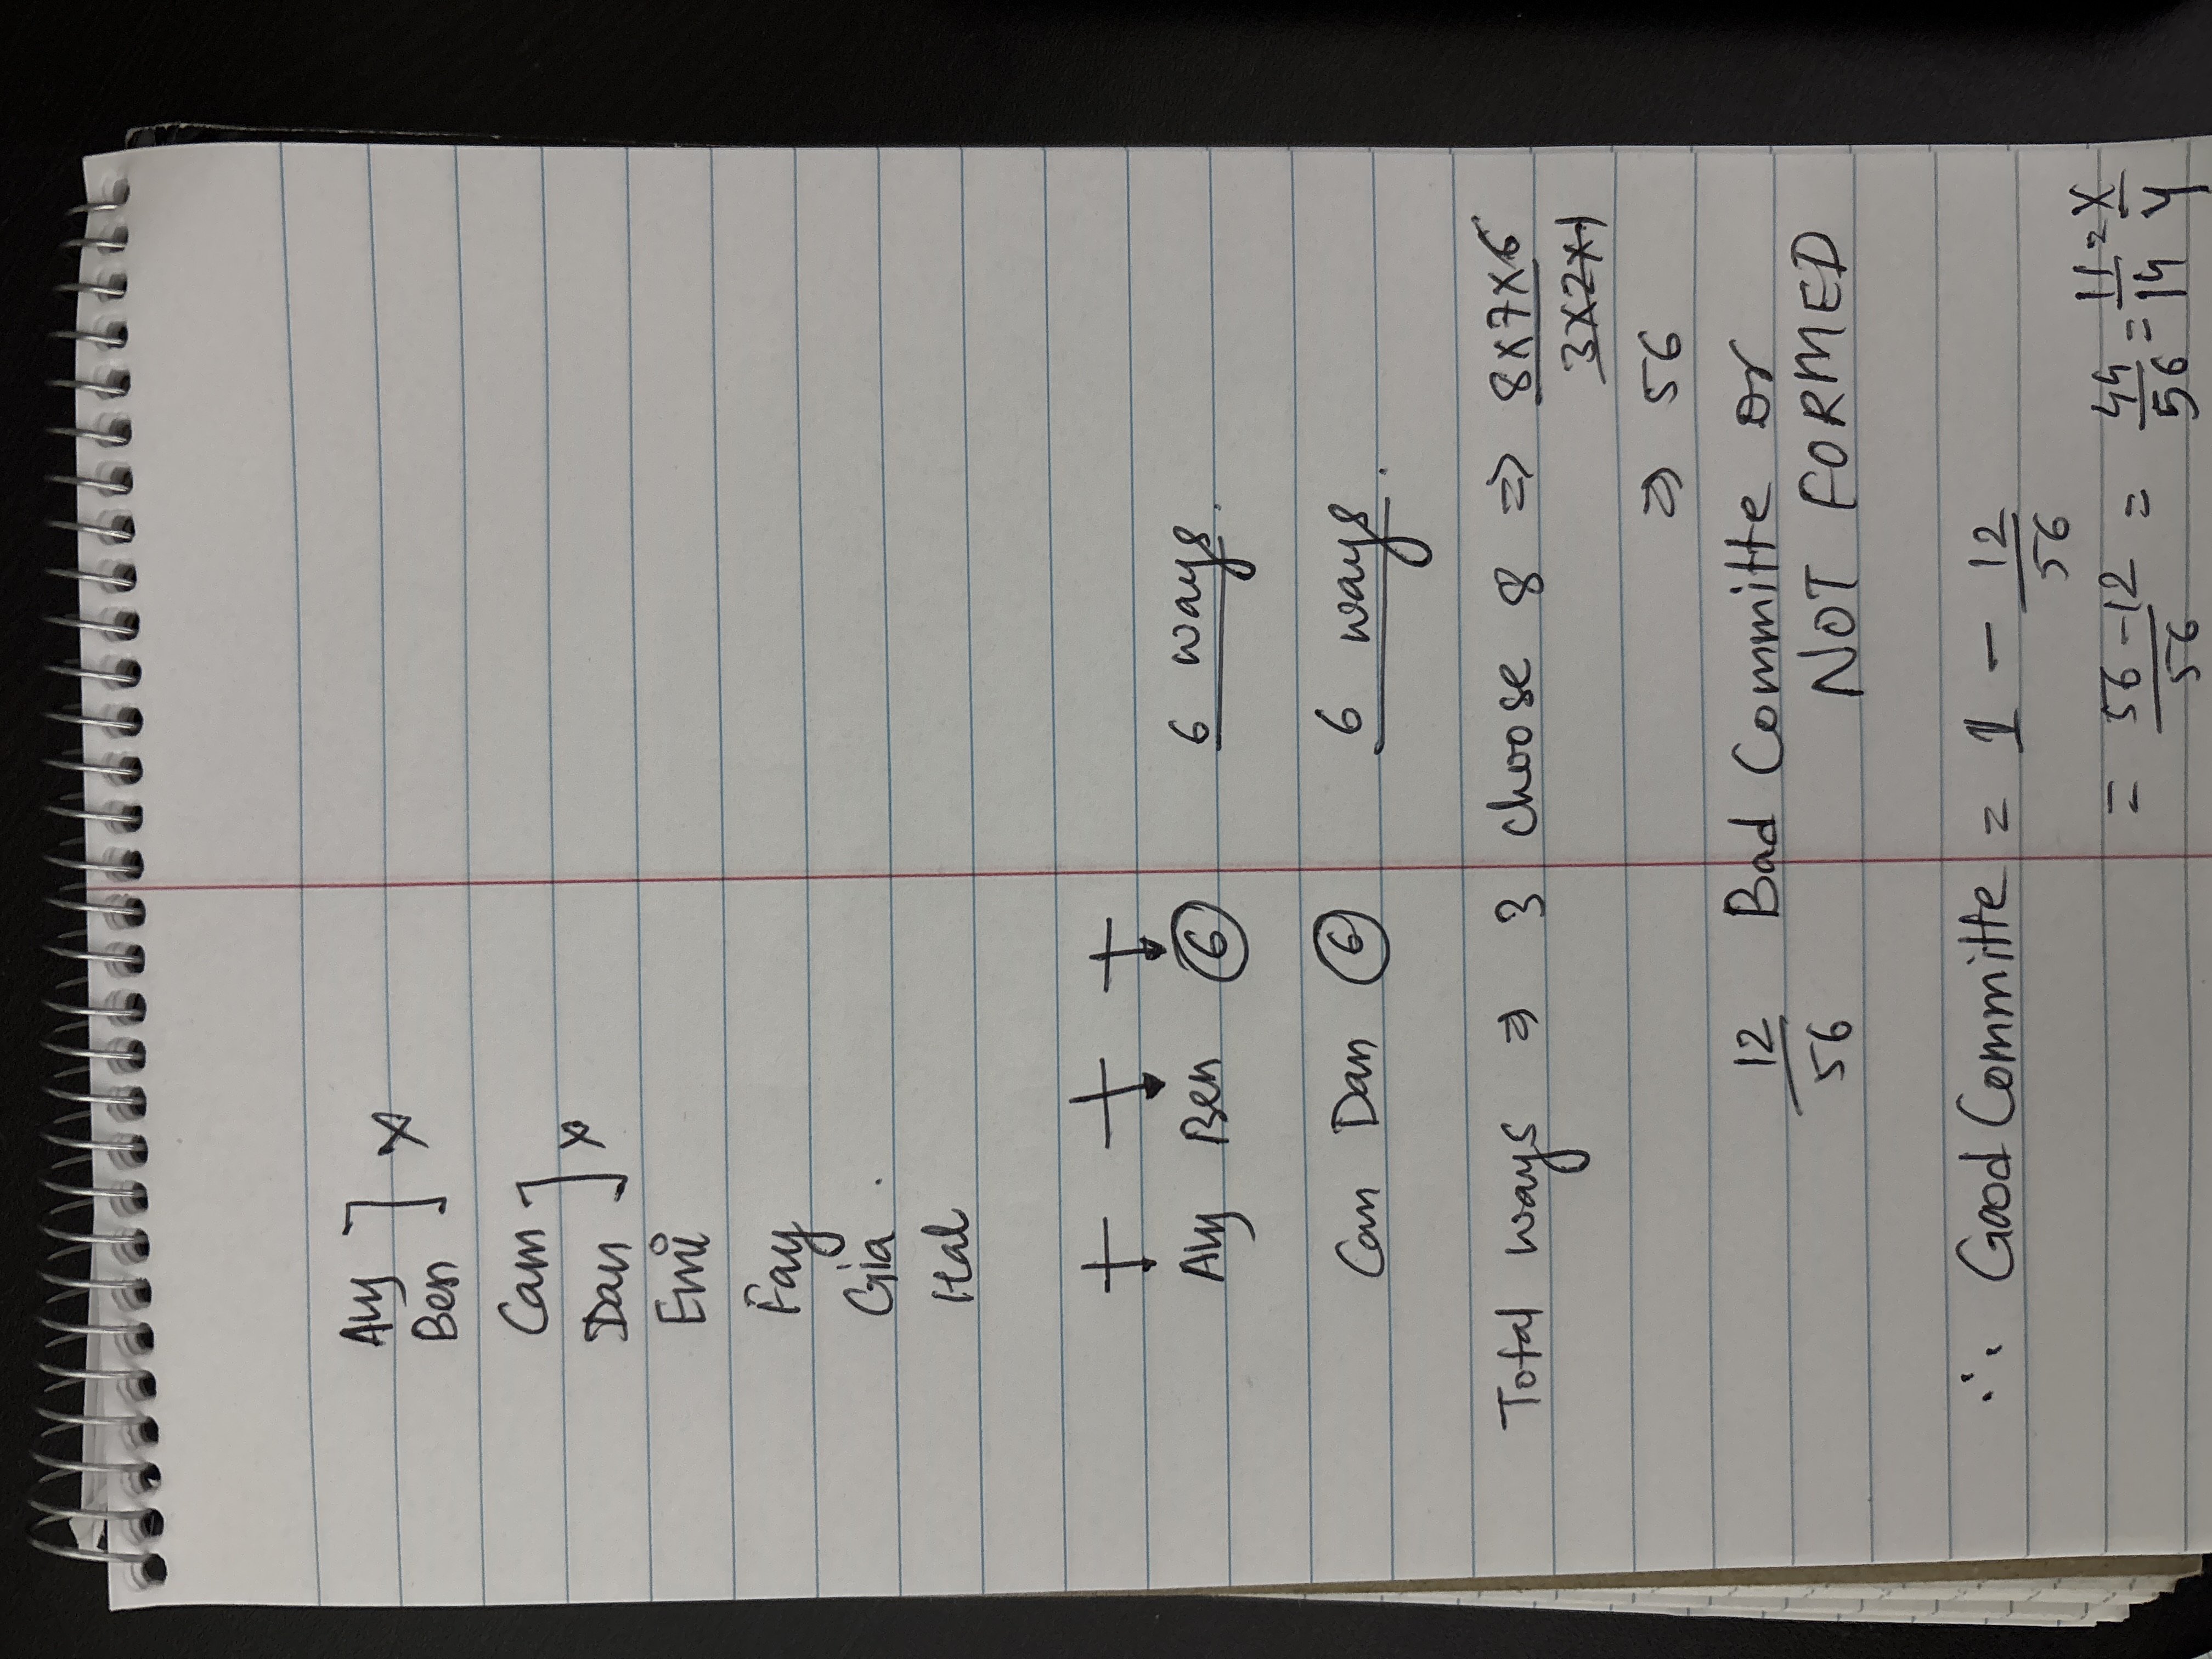 Avy ] x
Ben
Cam ] x
Dan
Emi
Fay
Gia.
Hal
Avy Ben ⑥ 6 ways.
Cam Dan ⑥ 6 ways.
Total ways ⇒ 3 choose 8 ⇒ 8×7×6
3×2×1
⇒ 56
12/56 Bad Committe or
NOT FORMED
∴ Good Committe = 1 - 12/56
= 56-12/56 = 44/56 = 11/14 = X/Y